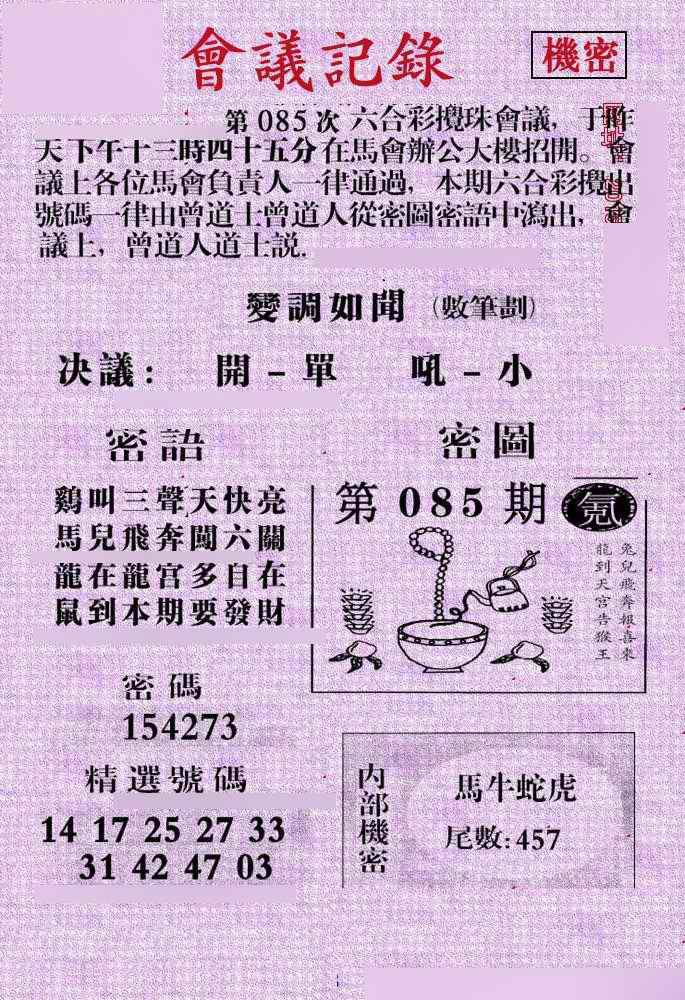 會議記錄
機密
第 085 次 六合彩攪珠會議，于昨
天下午十三時四十五分在馬會辦公大樓招開。會
議上各位馬會負責人一律通過，本期六合彩攪出
號碼一律由曾道士曾道人從密圖密語中瀉出，會
議上，曾道人道士説.
變調如聞（數筆劃）
决議： 開－單 吼－小
密語
鷄叫三聲天快亮
馬兒飛奔闖六關
龍在龍宫多自在
鼠到本期要發財
密圖
第 085 期
兔兒飛奔報喜來
龍到天宫告猴王
密碼
154273
精選號碼
14 17 25 27 33
31 42 47 03
内部機密
馬牛蛇虎
尾數:457